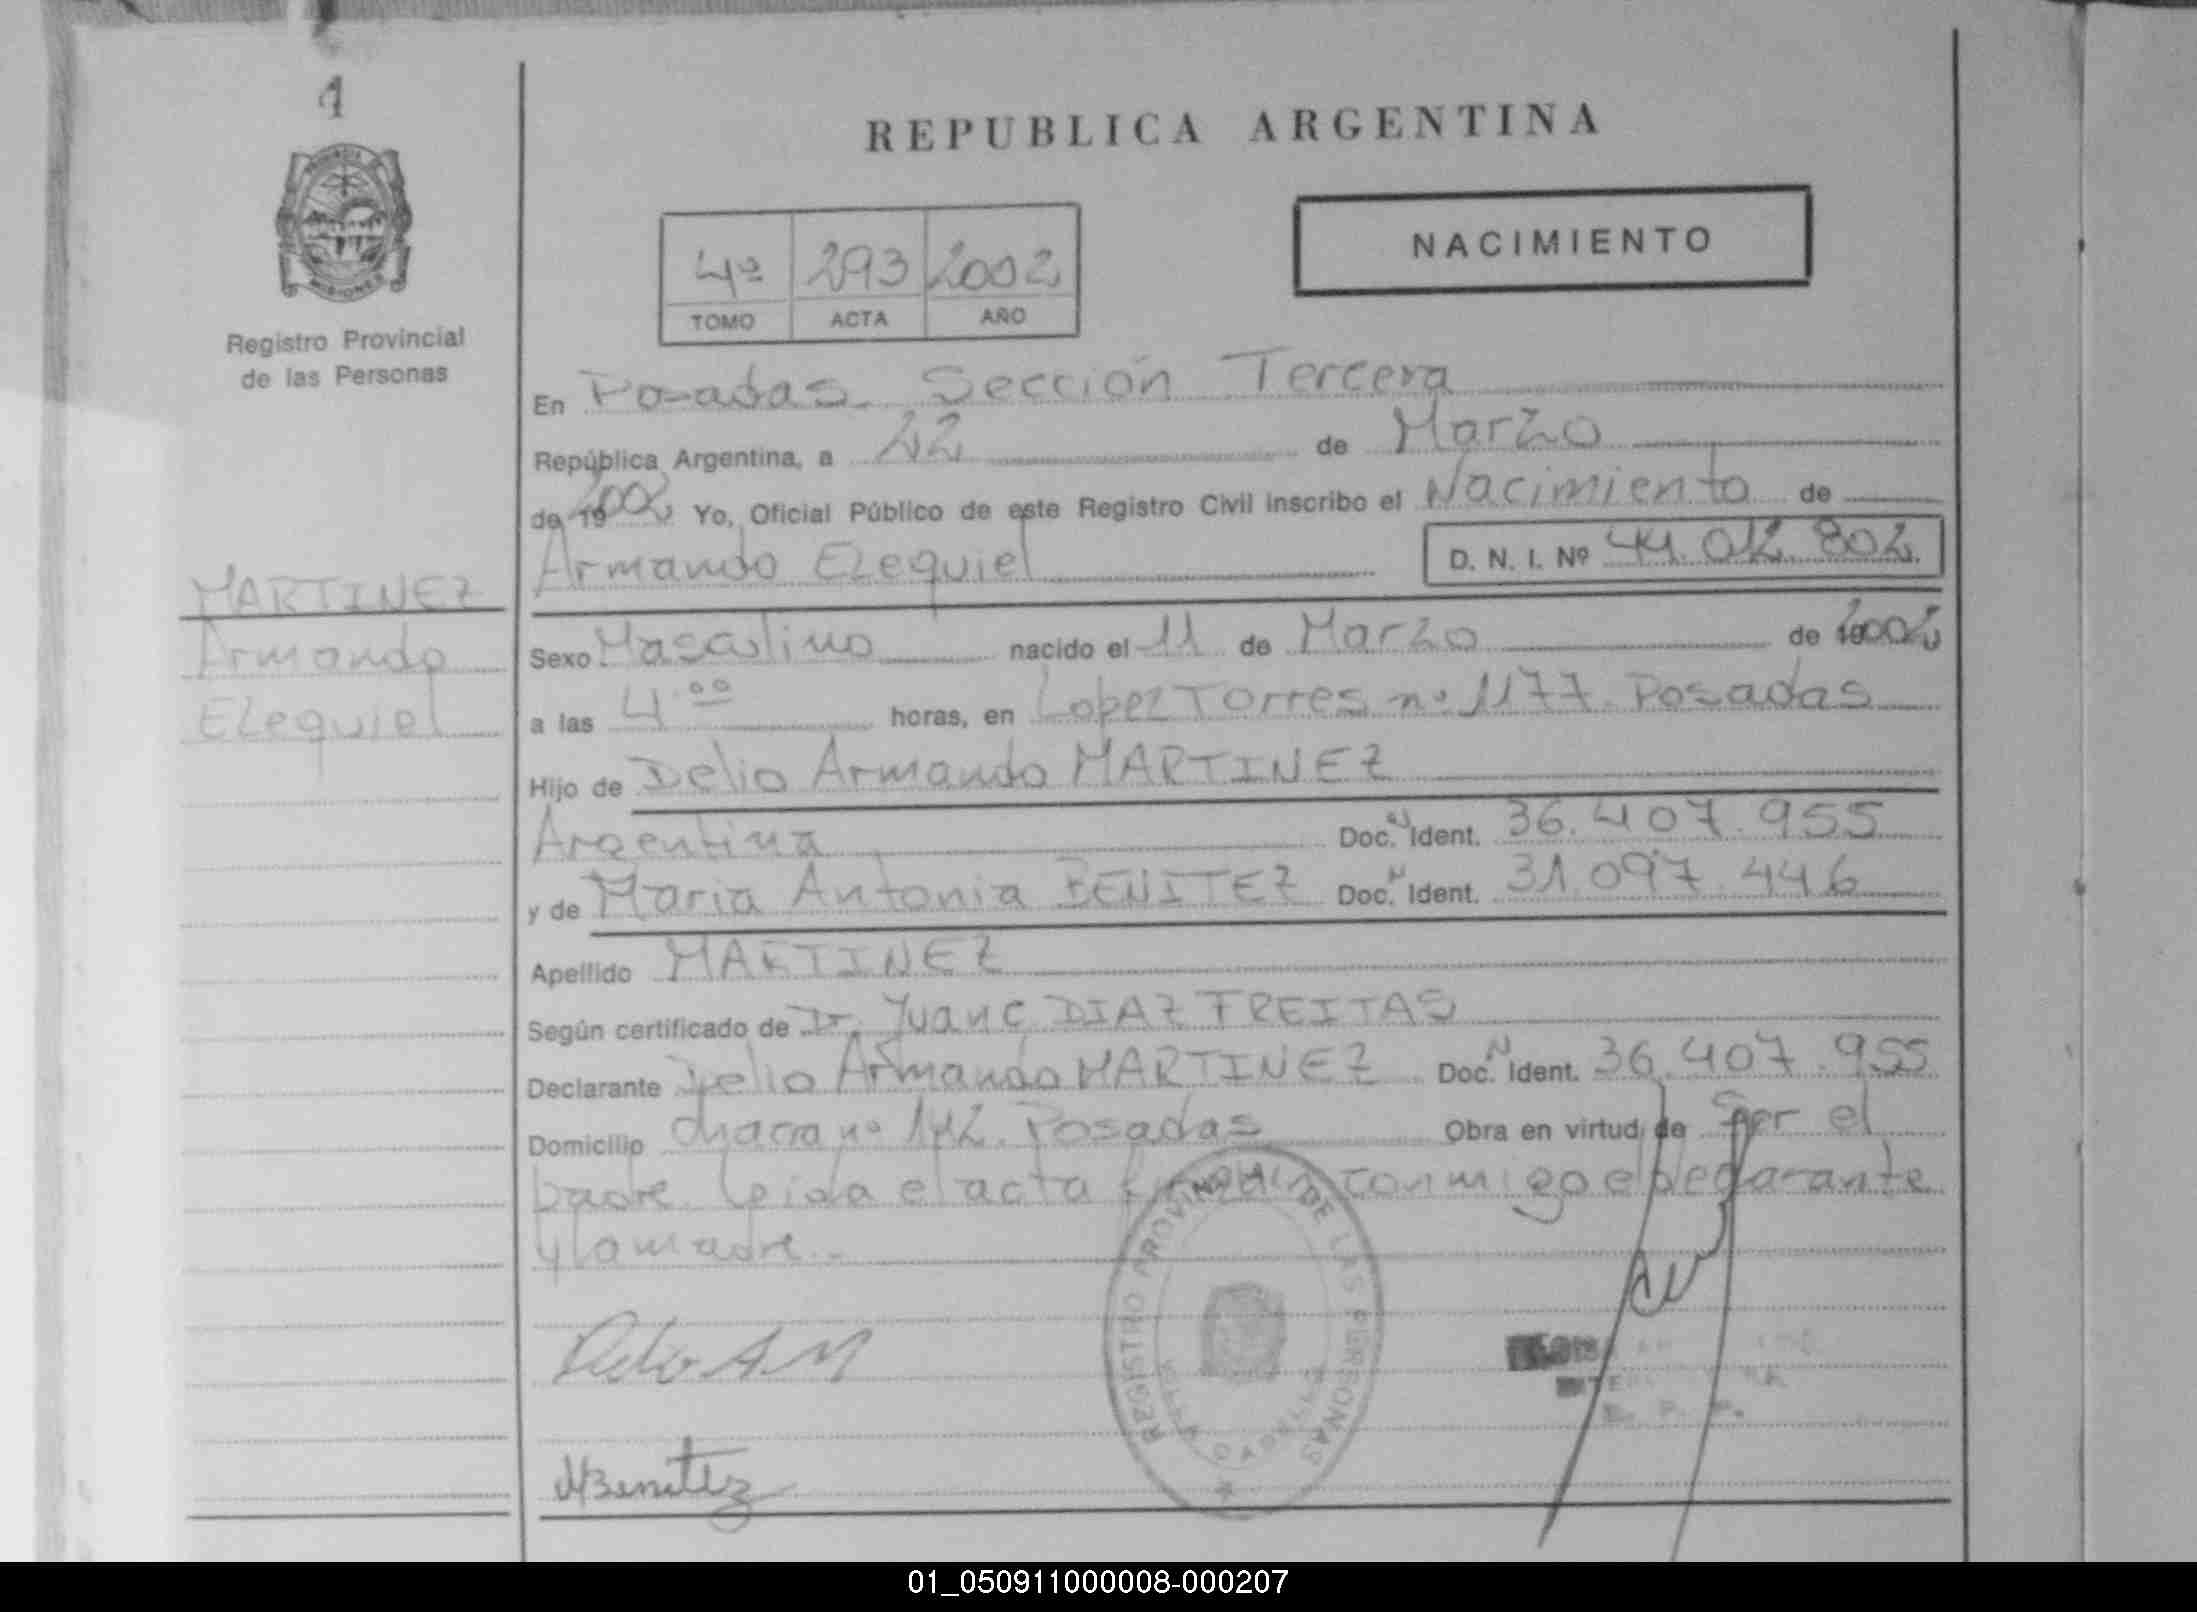 1
REPUBLICA ARGENTINA
NACIMIENTO
4º 293 2002
TOMO ACTA AÑO
PROVINCIA MISIONES
Registro Provincial
de las Personas
En Posadas Sección Tercera
República Argentina, a 22 de Marzo
de 19 2002 Yo, Oficial Público de este Registro Civil inscribo el Nacimiento de
Armando Ezequiel D. N. I. Nº 44.012.802
MARTINEZ
Armando
Ezequiel
Sexo Masculino nacido el 11 de Marzo de 2002
a las 4.00 horas, en Lopez Torres nº 1177. Posadas
Hijo de Delio Armando MARTINEZ
Argentina Doc. N Ident. 36.407.955
y de Maria Antonia BENITEZ Doc. N Ident. 31.097.446
Apellido MARTINEZ
Según certificado de Dr. Juan C DIAZ FREITAS
Declarante Delio Armando MARTINEZ Doc. N Ident. 36.407.955
Domicilio chacra nº 142. Posadas Obra en virtud de Ser el
padre. Leida el acta conmigo el declarante
y la madre.-
REGISTRO PROVINCIAL DE LAS PERSONAS
VILLA CABELLO
Delio A M
MBenitez
R. P. P.
01_050911000008-000207